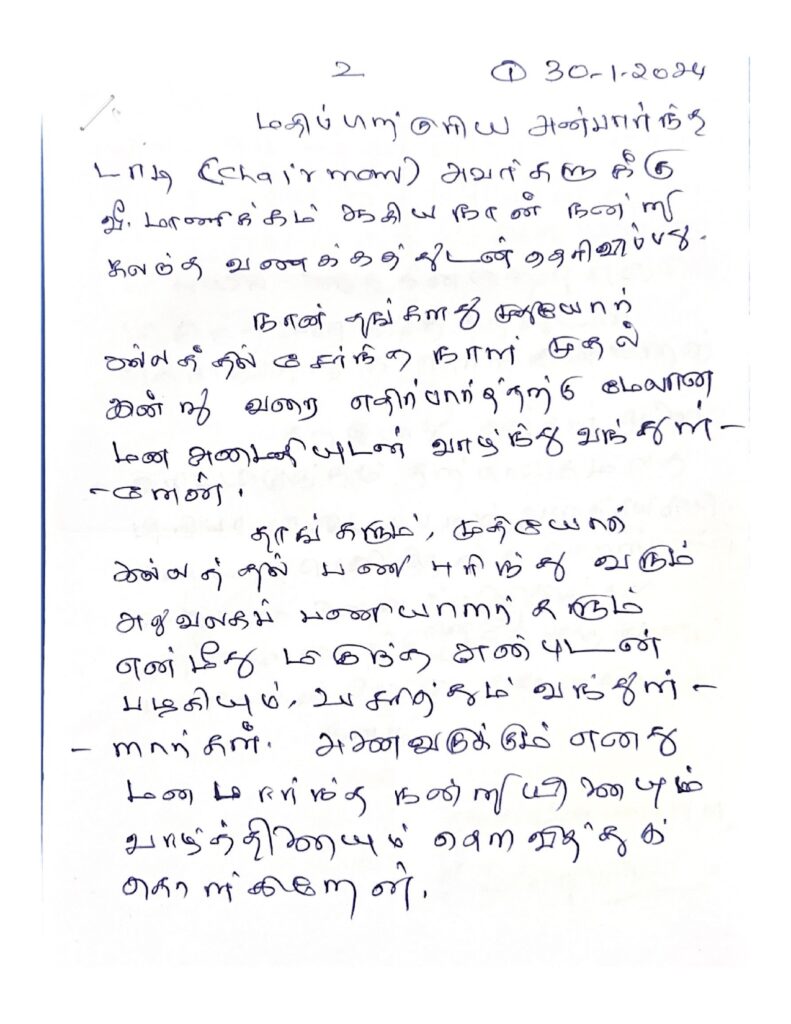 2 ① 30-1-2024
மதிப்பிற்குரிய அன்பார்ந்த
டாடி (Chairman) அவர்களுக்கு
வீ. மாணிக்கம் ஆகிய நான் நன்றி
கலந்த வணக்கத்துடன் தெரிவிப்பது.
நான் தங்களது முதியோர்
இல்லத்தில் சேர்ந்த நாள் முதல்
இன்று வரை எதிர்பார்த்தற்கு மேலான
மன அமைதியுடன் வாழ்ந்து வந்துள்-
-ளேன்.
தாங்களும், முதியோர்
இல்லத்தில் பணி புரிந்து வரும்
அலுவலகப் பணியாளர்களும்
என் மீது மிகுந்த அன்புடன்
பழகியும், உபசரித்தும் வந்துள்-
-ளார்கள். அனைவருக்கும் எனது
மனமார்ந்த நன்றியினையும்
வாழ்த்தினையும் தெரிவித்துக்
கொள்கிறேன்.